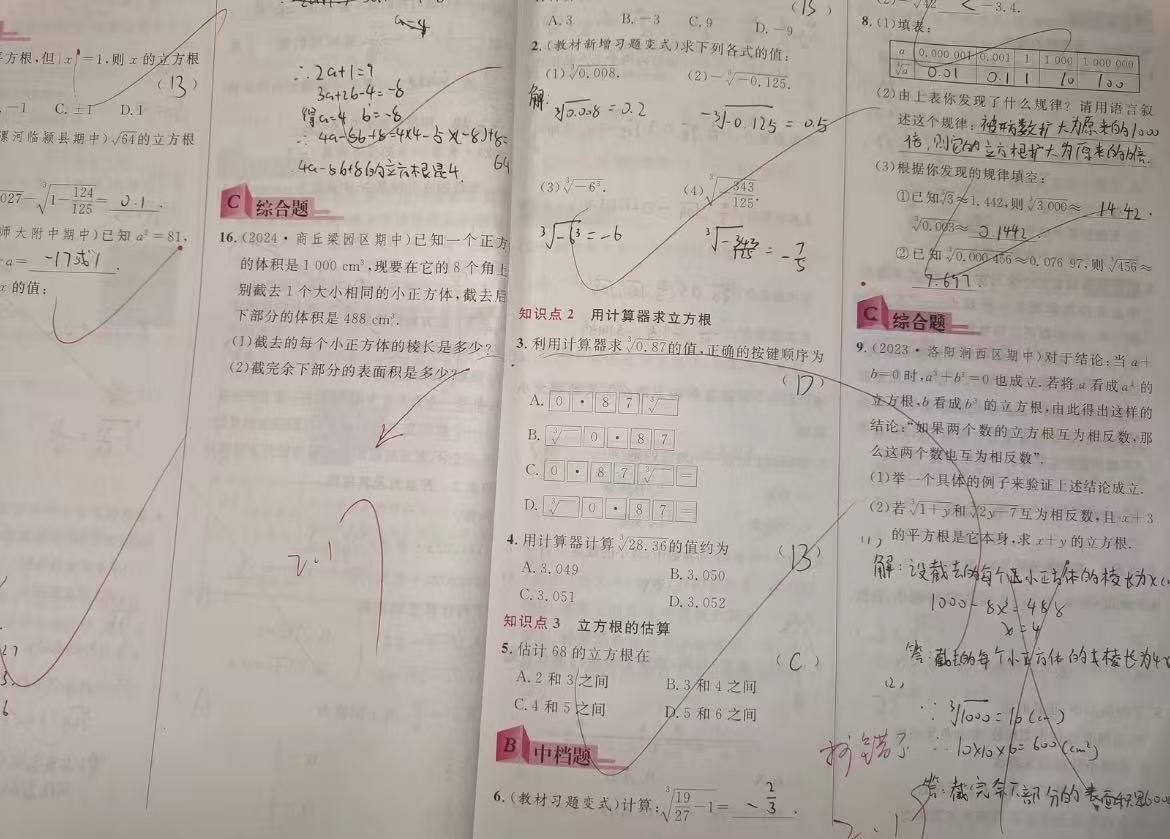 a=4
方根,但|x|=1,则 x 的立方根
(B)
-1 C.±1 D.1
漯河临颍县期中)√64的立方根
027-∛(1-124/125)= 0.1 .
师大附中期中)已知 a²=81,
a= -17或1 .
x 的值:
∴2a+1=9
3a+2b-4=-8
得a=4 b=-8
∴4a-5b+8=4×4-5×(-8)+8=
64
4a-5b+8的立方根是4.
C 综合题
16.(2024·商丘梁园区期中)已知一个正方
的体积是1 000 cm³,现要在它的8个角上
别截去1个大小相同的小正方体,截去后
下部分的体积是488 cm³.
(1)截去的每个小正方体的棱长是多少?
(2)截完余下部分的表面积是多少?
2.1
(B)
A.3 B.-3 C.9 D.-9
2.(教材新增习题变式)求下列各式的值:
(1)∛0.008. (2)-∛-0.125.
解:
∛0.008=0.2 -∛-0.125=0.5
(3)∛-6³. (4)∛-343/125.
∛-6³=-6 ∛-343/125=-7/5
知识点2 用计算器求立方根
3.利用计算器求∛0.87的值,正确的按键顺序为
(D)
A. 0 · 8 7 ∛
B. ∛ 0 · 8 7
C. 0 · 8 7 ∛ =
D. ∛ 0 · 8 7 =
4.用计算器计算∛28.36的值约为 (B)
A.3.049 B.3.050
C.3.051 D.3.052
知识点3 立方根的估算
5.估计68的立方根在 (C)
A.2和3之间 B.3和4之间
C.4和5之间 D.5和6之间
B 中档题
6.(教材习题变式)计算:∛(19/27-1)= -2/3 .
-√42 < -3.4.
8.(1)填表:
a 0.000 001 0.001 1 1 000 1 000 000
∛a 0.01 0.1 1 10 100
(2)由上表你发现了什么规律?请用语言叙
述这个规律:被开方数扩大为原来的1000
倍,则它的立方根扩大为原来的10倍.
(3)根据你发现的规律填空:
①已知∛3≈1.442,则∛3 000≈ 14.42 .
∛0.003≈ 0.1442 .
②已知∛0.000 456≈0.076 97,则∛456≈
7.697 .
C 综合题
9.(2023·洛阳涧西区期中)对于结论:当a+
b=0时,a³+b³=0也成立.若将a看成a³的
立方根,b看成b³的立方根,由此得出这样的
结论:“如果两个数的立方根互为相反数,那
么这两个数也互为相反数”.
(1)举一个具体的例子来验证上述结论成立.
(2)若∛1+y和∛2y-7互为相反数,且x+3
的平方根是它本身,求x+y的立方根.
(1)
解:设截去的每个小正方体的棱长为x
1000-8x³=488
x=4
答:截去的每个小正方体的棱长为4
(2)
∵∛1000=10(cm)
∴10×10×6=600(cm²)
答:截完余下部分的表面积是600
抄错了